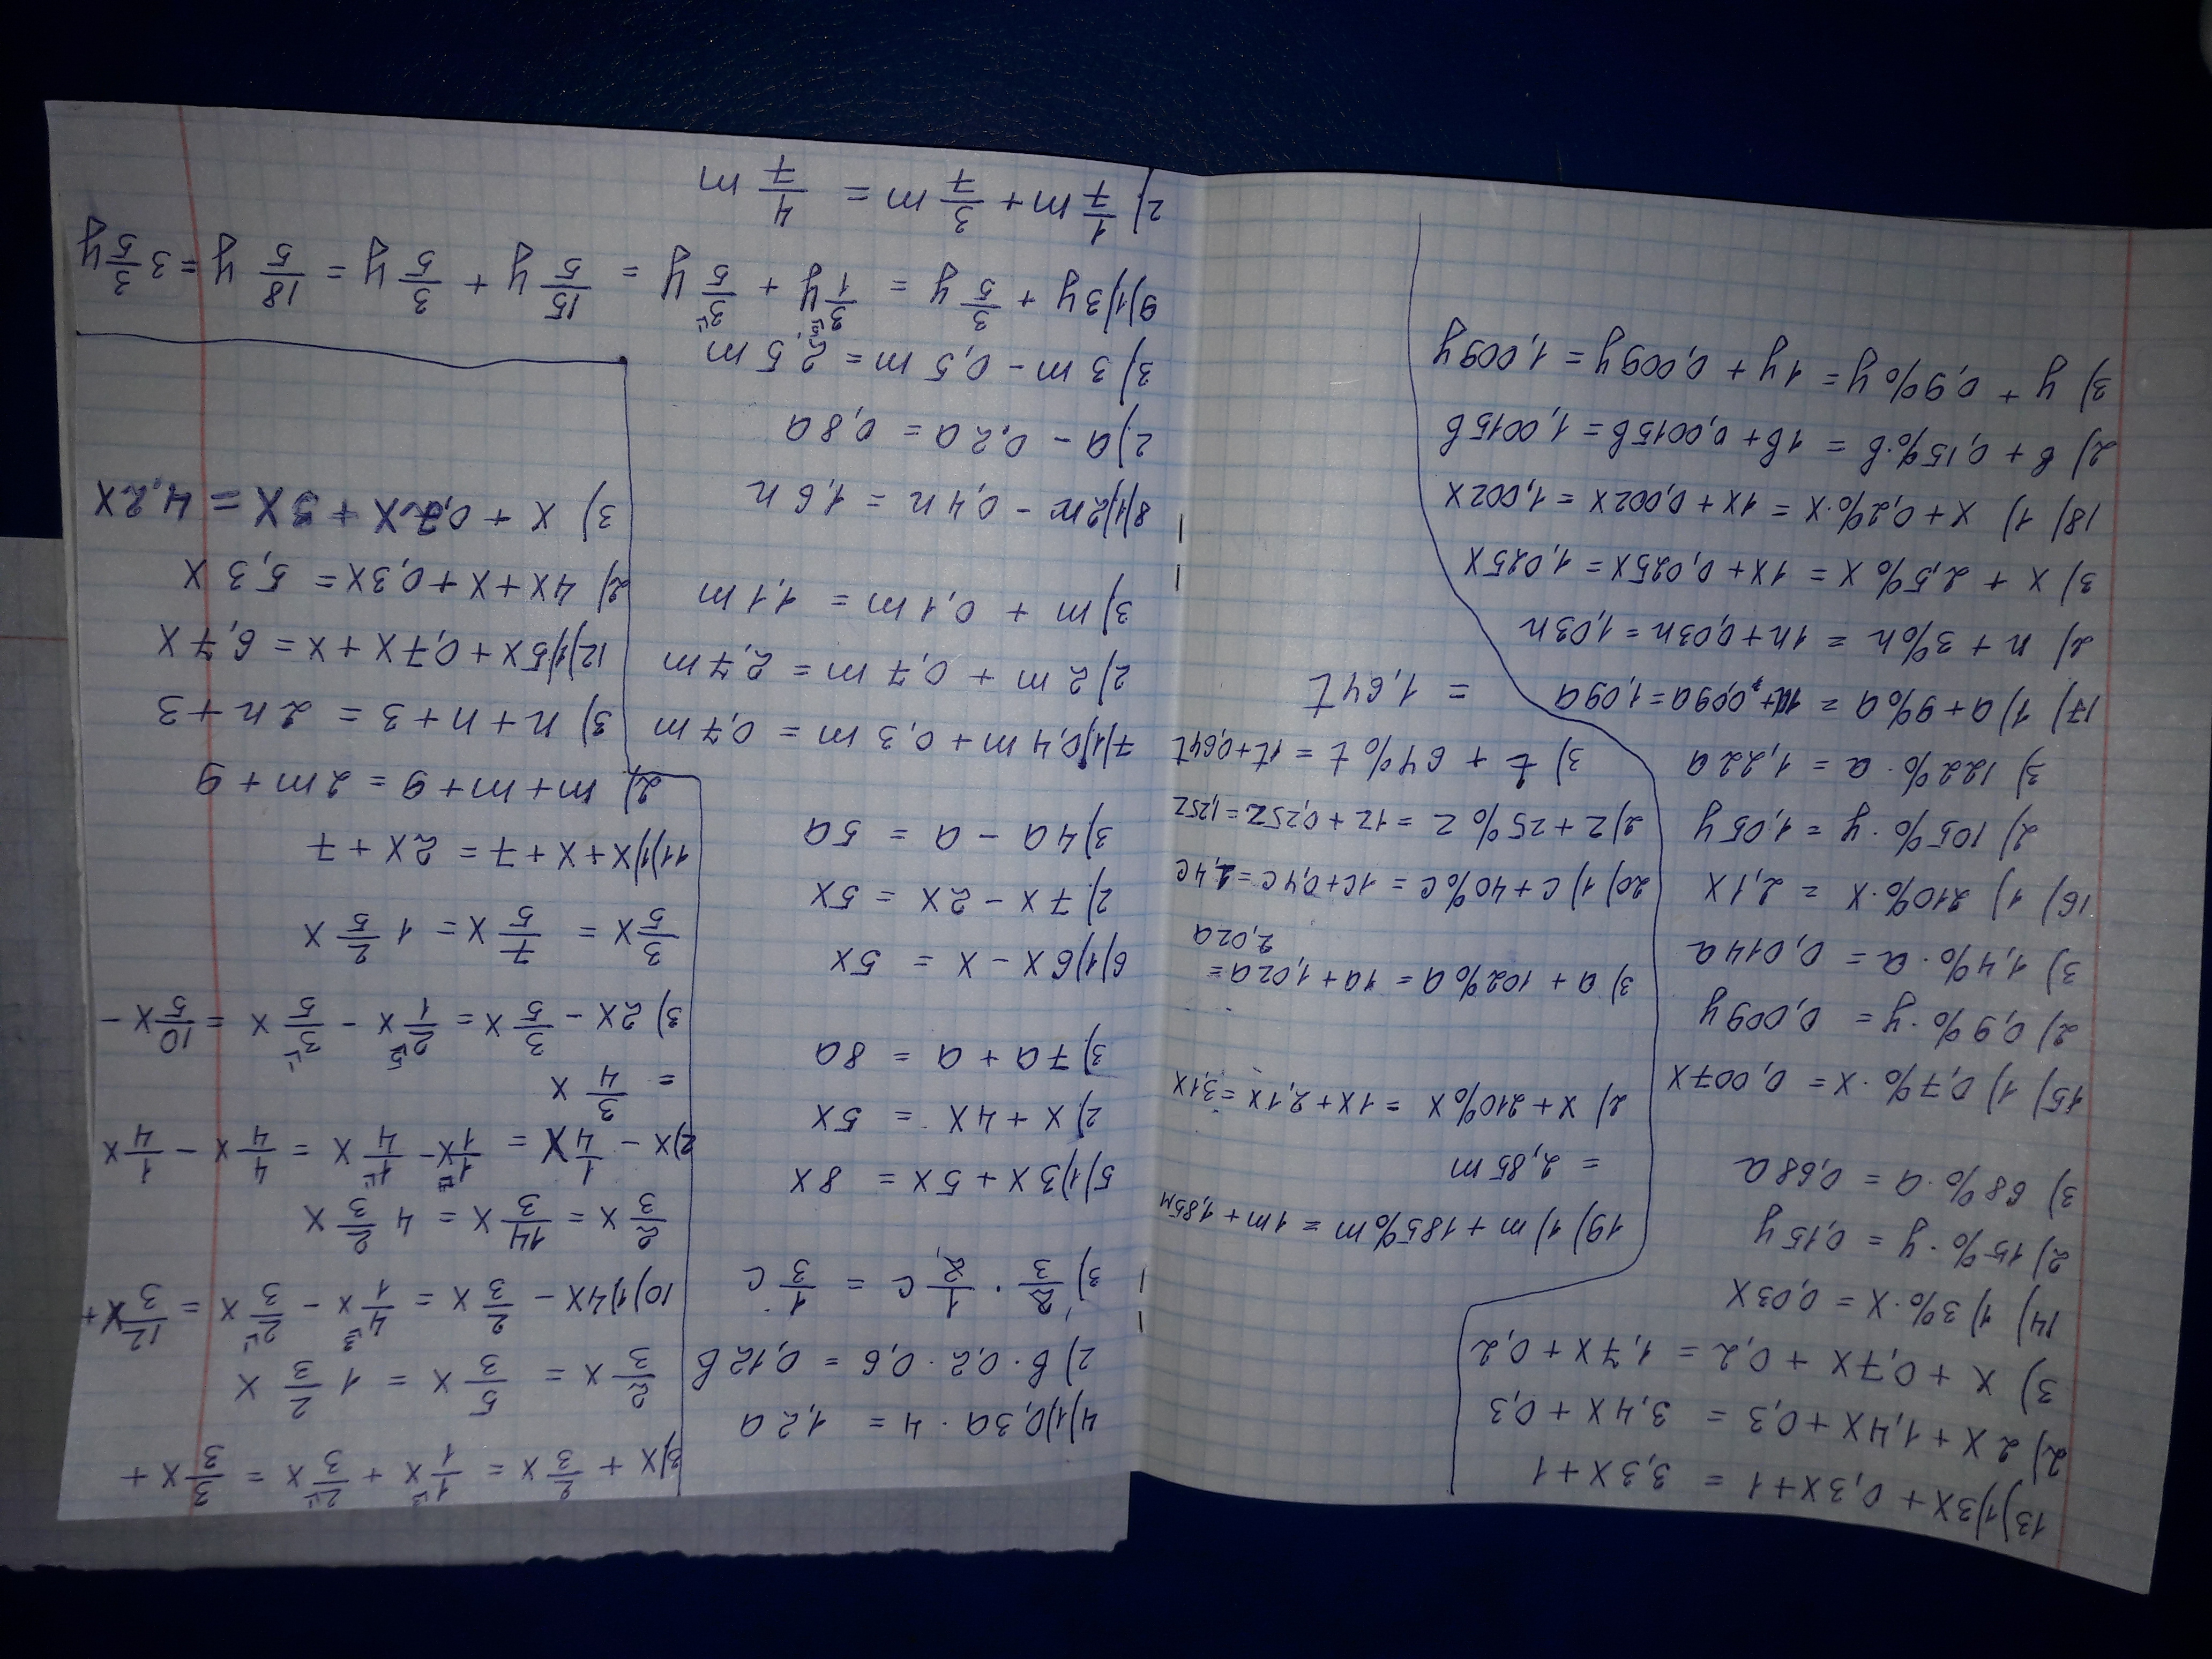 13)1)3x + 0,3x+1 = 3,3x+1
2) 2x + 1,4x + 0,3 = 3,4x + 0,3
3) x + 0,7x + 0,2 = 1,7x + 0,2
14) 1) 3%·x = 0,03x
2) 15%·y = 0,15y
3) 68%·a = 0,68a
15) 1) 0,7%·x = 0,007x
2) 0,9%·y = 0,009y
3) 1,4%·a = 0,014a
16) 1) 210%·x = 2,1x
2) 105%·y = 1,05y
3) 122%·a = 1,22a
17) 1) a+9%a = 1a+0,09a=1,09a
2) n + 3%n = 1n+0,03n=1,03n
3) x + 2,5%x = 1x+0,025x=1,025x
18) 1) x+0,2%·x = 1x+0,002x=1,002x
2) в + 0,15%·в = 1в+0,0015в=1,0015в
3) y + 0,9%y = 1y + 0,009y = 1,009y
19) 1) m + 185%m = 1m + 1,85м
= 2,85m
2) x+210%x = 1x+2,1x=3,1x
3) a + 102%a = 1a+1,02a=
2,02a
20) 1) c+40%c = 1c+0,4c=1,4c
2) z+25%z = 1z+0,25z=1,25z
3) t + 64%t = 1t+0,64t
= 1,64t
4)1)0,3a·4 = 1,2a
2) в·0,2·0,6 = 0,12в
3) 2/3 · 1/2 c = 1/3 c
5)1)3x + 5x = 8x
2) x + 4x = 5x
3) 7a + a = 8a
6)1)6x - x = 5x
2) 7x - 2x = 5x
3) 4a - a = 5a
7)1)0,4m+0,3m = 0,7m
2) 2m + 0,7m = 2,7m
3) m + 0,1m = 1,1m
8)1)2n - 0,4n = 1,6n
2) a - 0,2a = 0,8a
3) 3m - 0,5m = 2,5m
9)1)3y + 3/5 y = 3/1 y + 3/5 y = 15/5 y + 3/5 y = 18/5 y = 3 3/5 y
2) 1/7 m + 3/7 m = 4/7 m
3)x + 2/3 x = 1/1 x + 2/3 x = 3/3 x +
2/3 x = 5/3 x = 1 2/3 x
10)1)4x - 2/3 x = 4/1 x - 2/3 x = 12/3 x +
2/3 x = 14/3 x = 4 2/3 x
2)x - 1/4 x = 1/1 x - 1/4 x = 4/4 x - 1/4 x
= 3/4 x
3) 2x - 3/5 x = 2/1 x - 3/5 x = 10/5 x -
3/5 x = 7/5 x = 1 2/5 x
11)1)x+x+7 = 2x+7
2) m+m+9 = 2m+9
3) n+n+3 = 2n+3
12)1)5x+0,7x+x = 6,7x
2) 4x+x+0,3x = 5,3x
3) x + 0,2x + 3x = 4,2x